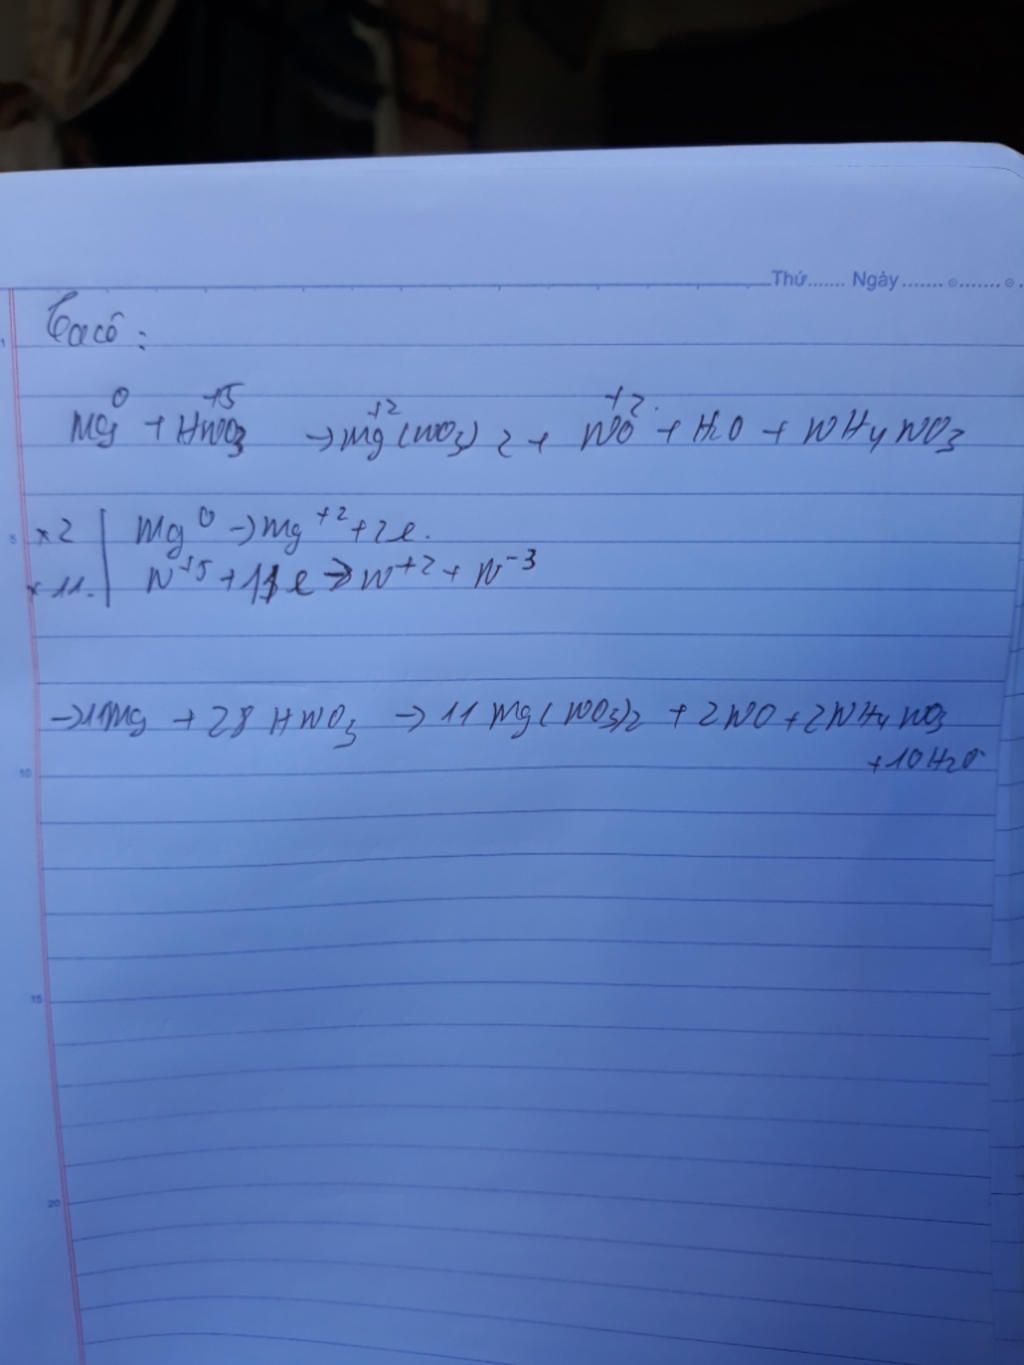 Thứ....... Ngày.......
Ta có:
Mg⁰ + HNO₃⁺⁵ → Mg⁺²(NO₃)₂ + NO⁺² + H₂O + NH₄NO₃
x2 | Mg⁰ → Mg⁺² + 2e.
x11. | N⁺⁵ + 11e → N⁺² + N⁻³
→ 11Mg + 28HNO₃ → 11Mg(NO₃)₂ + 2NO + 2NH₄NO₃
+ 10H₂O
1
5
10
15
20